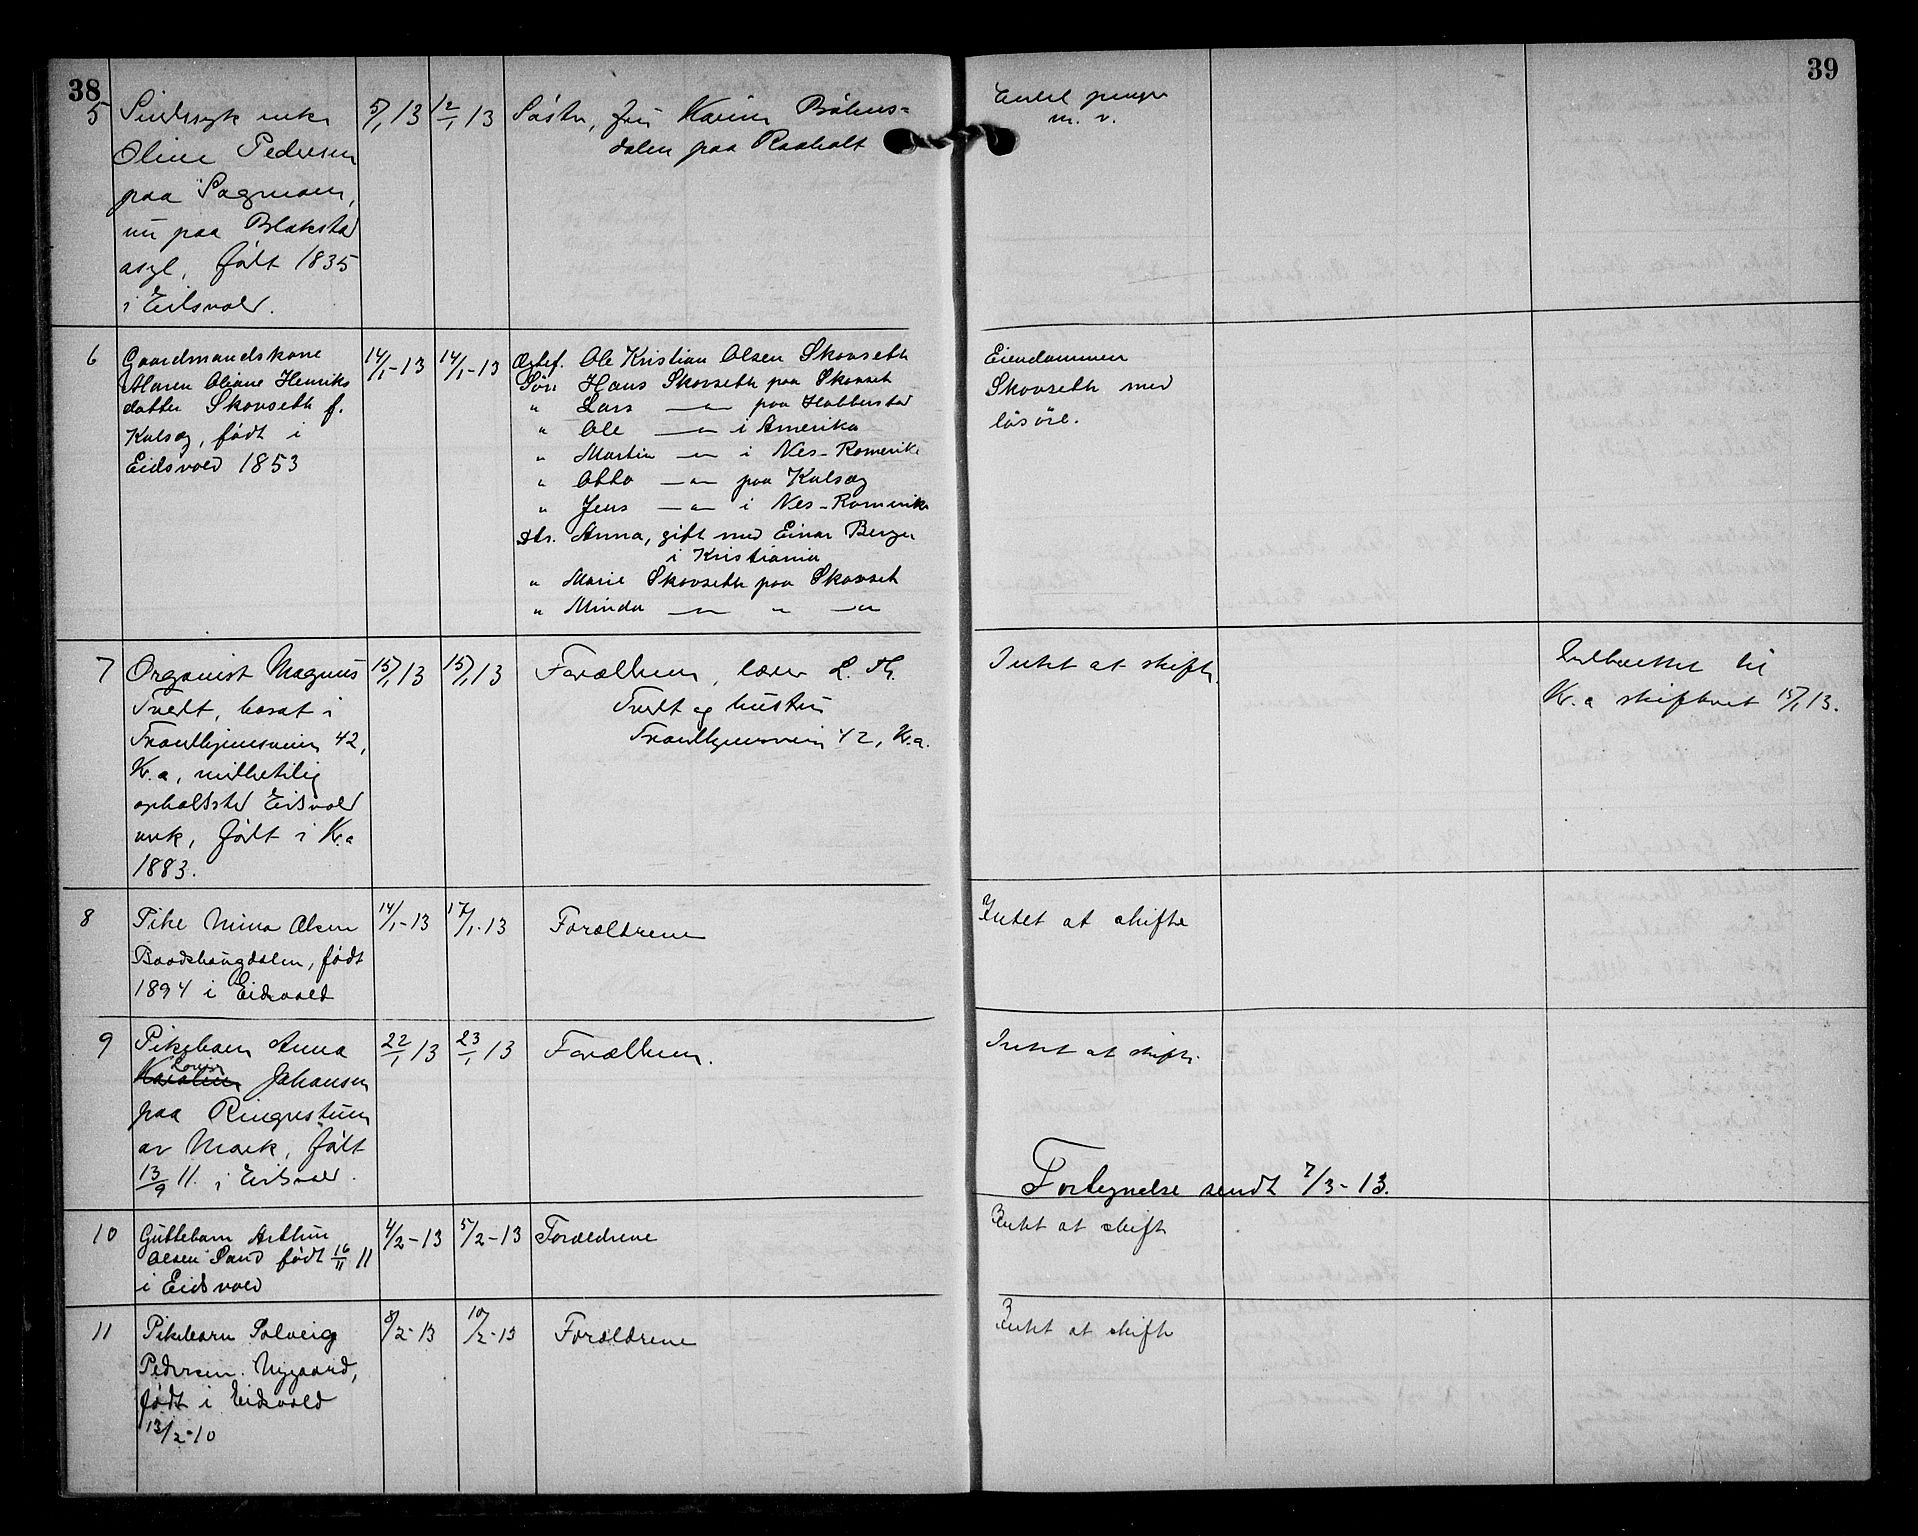 38
39
5 Sindssyk enke 5/1 13 12/1 13 Søster, fru Karen Bøhns-
Oline Pedersen dalen paa Raaholt
paa Sagmoen,
nu paa Blakstad
asyl, født 1835
i Eidsvold.
m. v.
6 Gaardmandskone 14/1-13 14/1-13 Ægtef. Ole Kristian Olsen Skovseth
Maren Oliane Henriks Søn Hans Skovseth paa Skovset
datter Skovseth f. " Lars —"— paa Habberstad
Kulsæg, født i " Ole —"— i Amerika
Eidsvold 1853 " Martin —"— i Nes-Romerike
" Otto —"— paa Kulsæg
" Jens —"— i Nes-Romerike
Dtr. Anna, gift med Einar Berger
i Kristiania
" Marie Skovseth paa Skovset
" Minda —"— " —"—
Eiendommen
Skovseth med
løsøre.
7 Organist Magnus 15/1 13 15/1 13 Forældrene, lærer L. Th.
Tvedt, bosat i Tvedt og hustru
Trondhjemsveien 42, Trondhjemsveien 42, Kr.a.
Kr.a, midlertidig
opholdssted Eidsvold
verk, født i Kr.a
1883.
Intet at skifte.
Indberettet til
Kr.a skifteret 15/1 13.
8 Pike Mina Olsen 14/1-13 17/1-13 Forældrene
Baadshaugdalen, født
1894 i Eidsvold
Intet at skifte
9 Pikebarn Anna 22/1 13 23/1 13 Forældrene.
Lovise
Karoline Johansen
paa Ringrestuen
av Mork, født
13/9 11. i Eidsvold.
Intet at skifte.
Fortegnelse sendt 7/3-13.
10 Guttebarn Arthur 4/2-13 5/2-13 Forældrene
Olsen Sand født 16/11 11
i Eidsvold
Intet at skifte
11 Pikebarn Solveig 8/2-13 10/2-13 Forældrene
Pedersen Nygaard,
født i Eidsvold
13/2-10
Intet at skifte